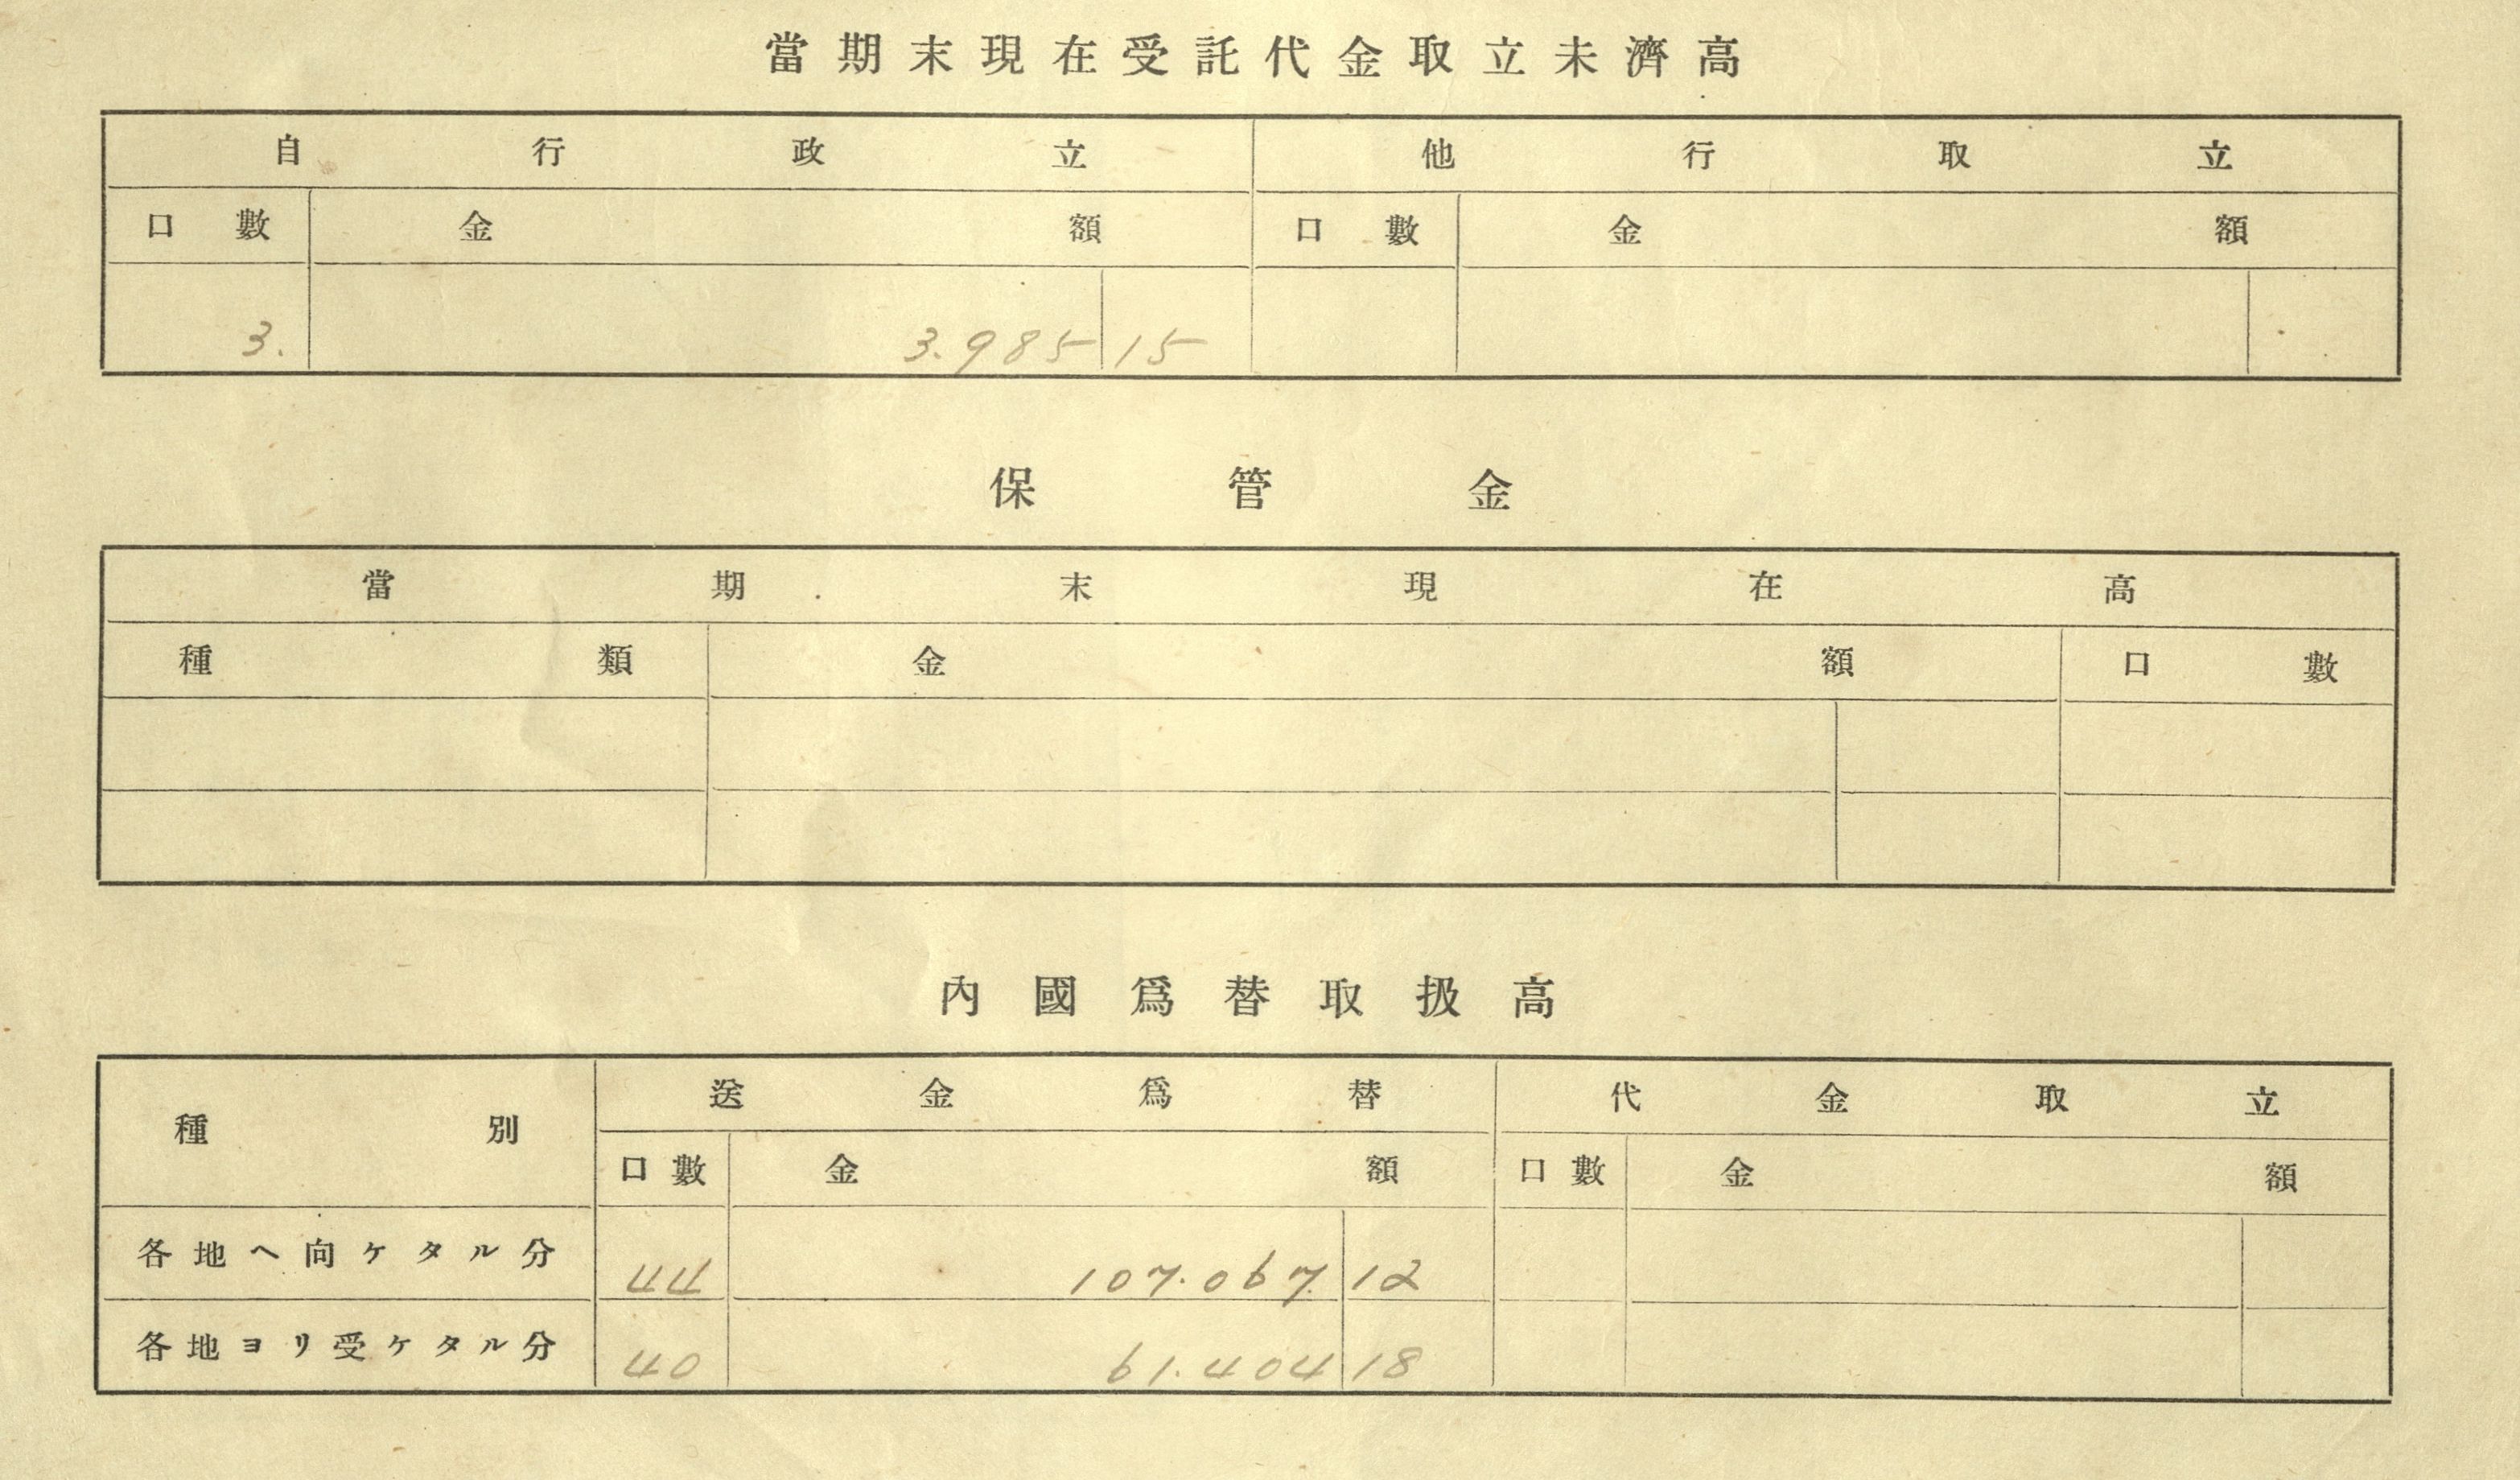 當期末現在受託代金取立未濟高
自行政立 他行取立
口數 金額 口數 金額
3. 3.985 15
保管金
當期末現在高
種類 金額 口數
內國爲替取扱高
種別 送金爲替 代金取立
口數 金額 口數 金額
各地ヘ向ケタル分 44 107.067 12
各地ヨリ受ケタル分 40 61.404 18